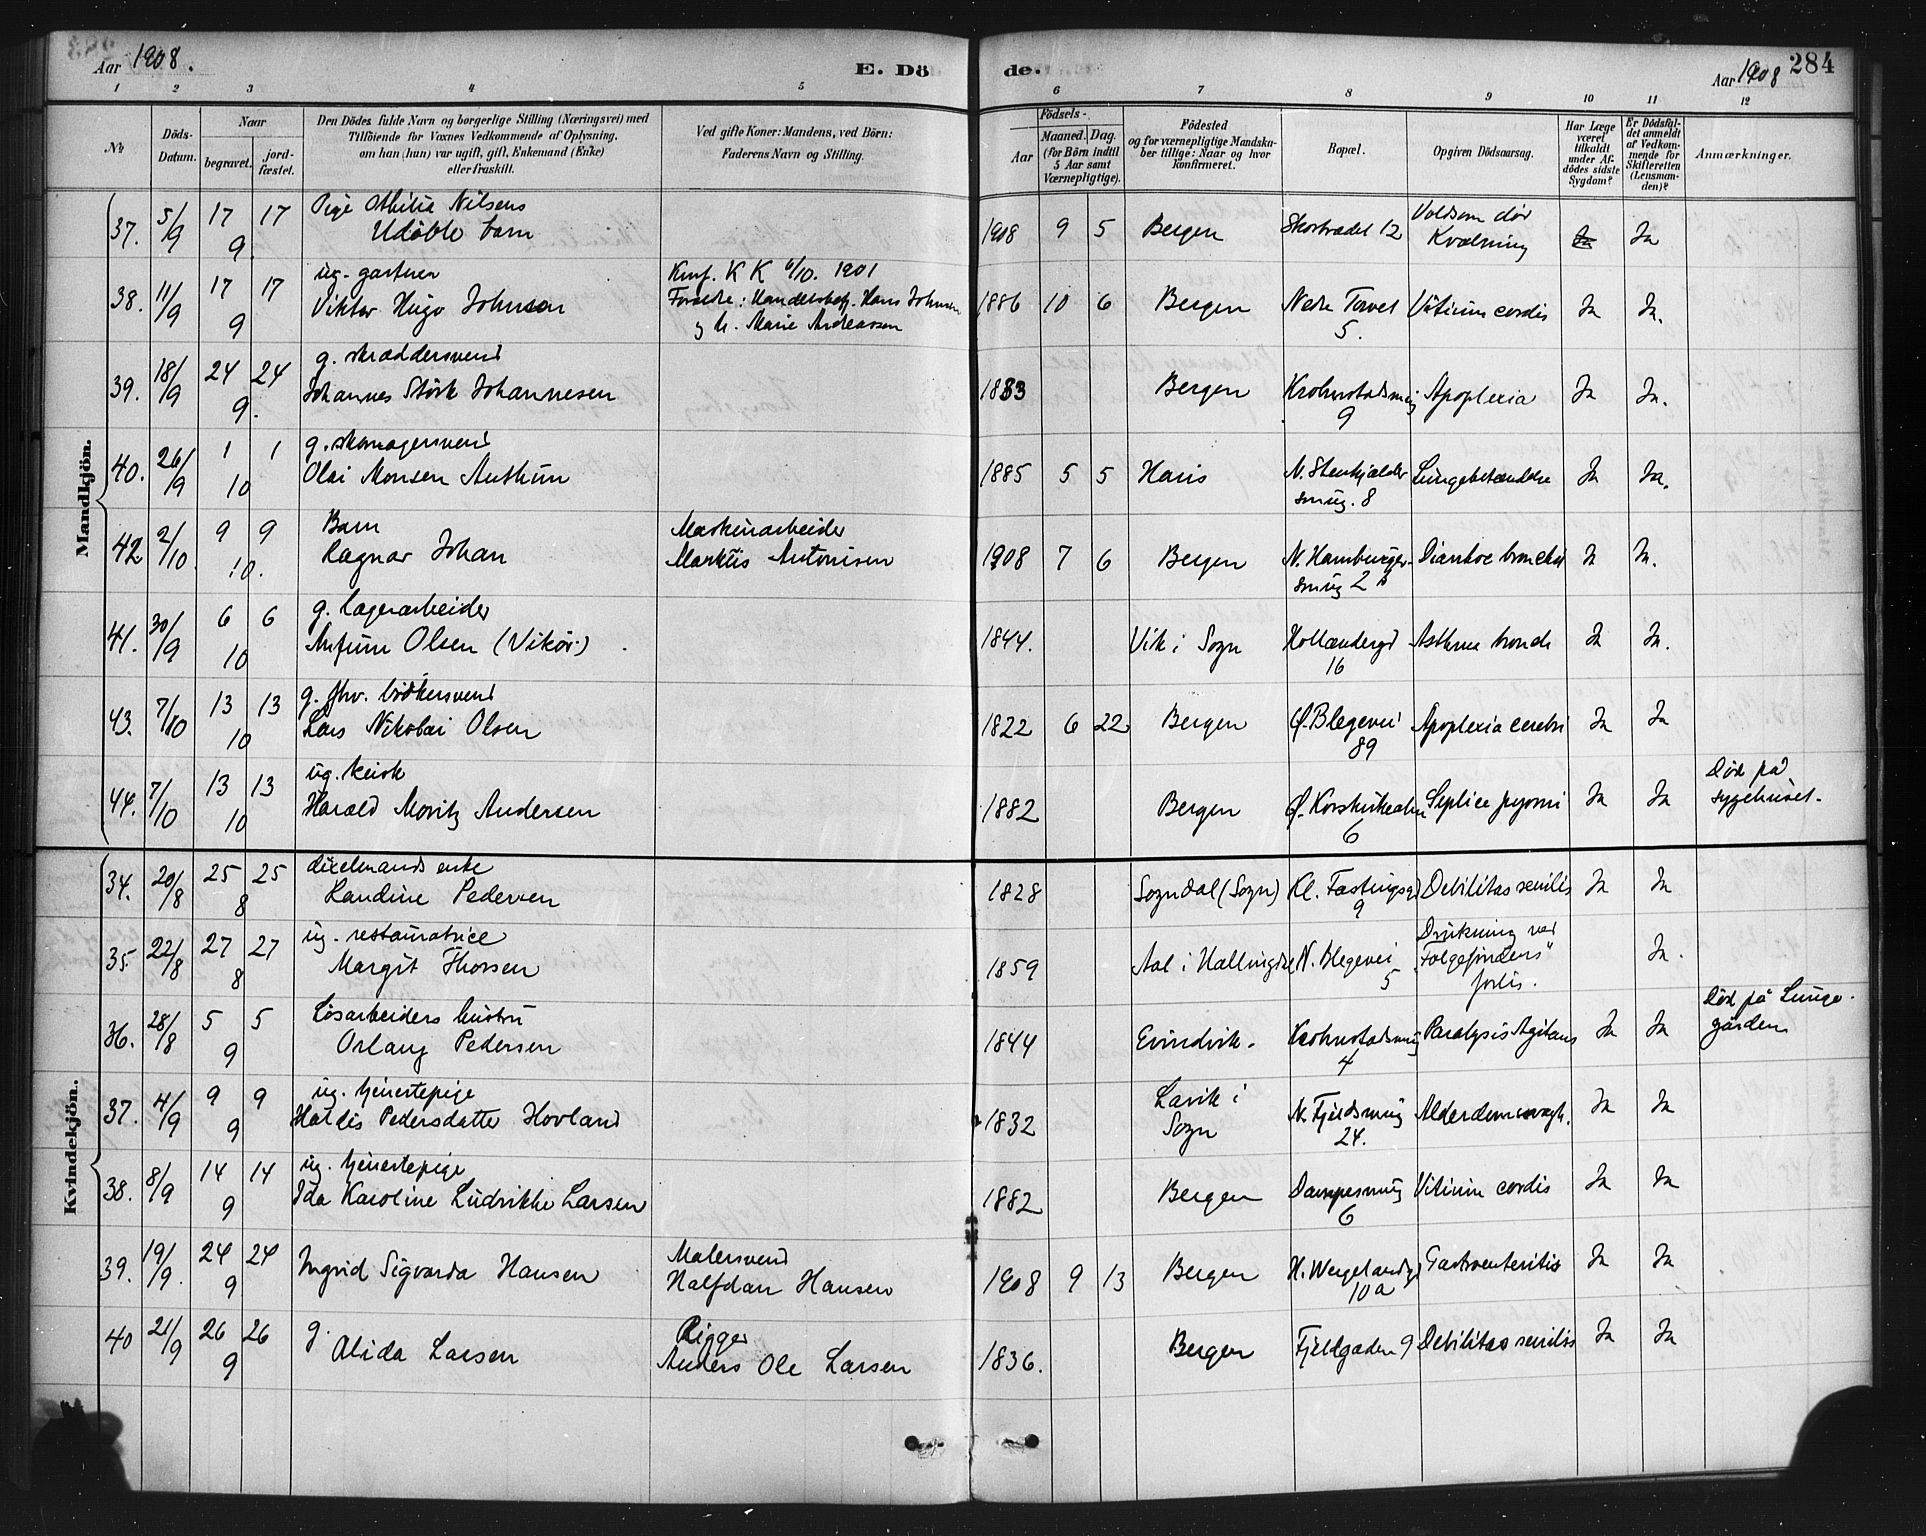 Aar 1908.
E. Dö de.
Aar 1908
284
1 2 3 4 5 6 7 8 9 10 11 12
No
Döds-Datum.
Naar
begravet.
jord-fæstet.
Den Dödes fulde Navn og borgerlige Stilling (Næringsvei) med
Tilföiende for Voxnes Vedkommende af Oplysning,
om han (hun) var ugift, gift, Enkemand (Enke)
eller fraskilt.
Ved gifte Koner: Mandens, ved Börn:
Faderens Navn og Stilling.
Födsels-
Aar
Maaned. Dag.
(for Börn indtil
5 Aar samt
Værnepligtige).
Födested
og for værnepligtige Mandska-
ber tillige: Naar og hvor
konfirmeret.
Bopæl.
Opgiven Dödsaarsag.
Har Læge
været
tilkaldt
under Af-
dödes sidste
Sygdom?
Er Dödsfal-
det anmeldt
af Vedkom-
mende for
Skifteretten
(Lensman-
den)?
Anmærkninger.
Mandkjön.
37. 5/9 17/9 17 Pige Othilia Nilsens
Udöbte barn 1908 9 5 Bergen Skostrædet 12 Voldsom död
Kvælning Ja Ja
38. 11/9 17/9 17 ug. gartner
Viktor Hugo Johnson Konf. K K 6/10. 1901
Hans Johnsen
Marie Andreassen 1886 10 6 Bergen Nedre Torvet
5. Vitium cordis Ja Ja.
39. 18/9 24/9. 24 g. skræddersvend
Johannes Störk Johannesen 1833 Bergen Krohnstadsmug
9 Apoplexia Ja Ja.
40. 26/9 1/10 1 g. skomagersvend
Olai Monsen 1885 5 5 Haus N. Stenkjælder
smug. 8 Lungebetændelse Ja Ja.
42 2/10 9/10. 9 Barn
Ragnar Johan Maskinarbeider
Markus Antonisen 1908 7 6 Bergen N. Hamburger-
smug 2 Ja Ja.
41. 30/9 6/10 6 g. lagerarbeider
Olsen (Vikör) 1844. Vik i Sogn Hollendergd
16 Ja Ja.
43. 7/10 13/10 13 g. fhv. bödkersvend
Lars Nikolai Olsen 1822 6 22 Bergen Ö. Blegevei
89 Apoplexia cerebri Ja Ja
44. 7/10 13/10 13 ug.
Harald Moritz Andersen 1882 Bergen Ö. Korskirkealm
6 Ja Ja Död på
sygehuset.
Kvindekjön.
34. 20/8 25/8 25 enke
Landine Pedersen 1828 Sogndal (Sogn) Kl. Fastingsgd
9 Debilitas senilis Ja Ja
35. 22/8 27/8 27 ug. restauratrice
Margit Thorsen 1859 Aal i Hallingdal N. Blegevei
5 Drukning ved
"Folgefondens"
forlis. Ja.
36. 28/8 5/9 5 Lösarbeiders hustru
Orlaug Pedersen 1844 Evindvik. Krohnstadsmug
4 Paralysis Agitans Ja Ja Död på Lunge-
gården
37. 4/9 9/9 9 ug. tjenestepige
Haldis Pedersdatter Hovland 1832 Lavik i
Sogn N. Fjeldsmug
24. Alderdomssvagh. Ja Ja
38. 8/9 14/9 14 ug. tjenestepige
Ida Karoline Ludvikke Larsen 1882 Bergen Dampesmug
6 Vitium cordis Ja Ja
39. 19/9. 24/9 24 Ingrid Sigvarda Hansen Malersvend
Halfdan Hansen 1908 9 13 Bergen H. Wergelandgd
10a Gastroenteritis Ja Ja
40 21/9 26/9 26 g.
Alida Larsen Rigger
Anders Ole Larsen 1836. Bergen Fjeldgaden 9 Debilitas senilis Ja Ja